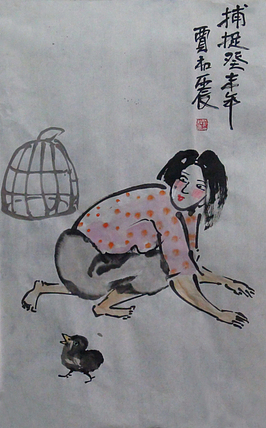 捕捉癸未年
賈和震